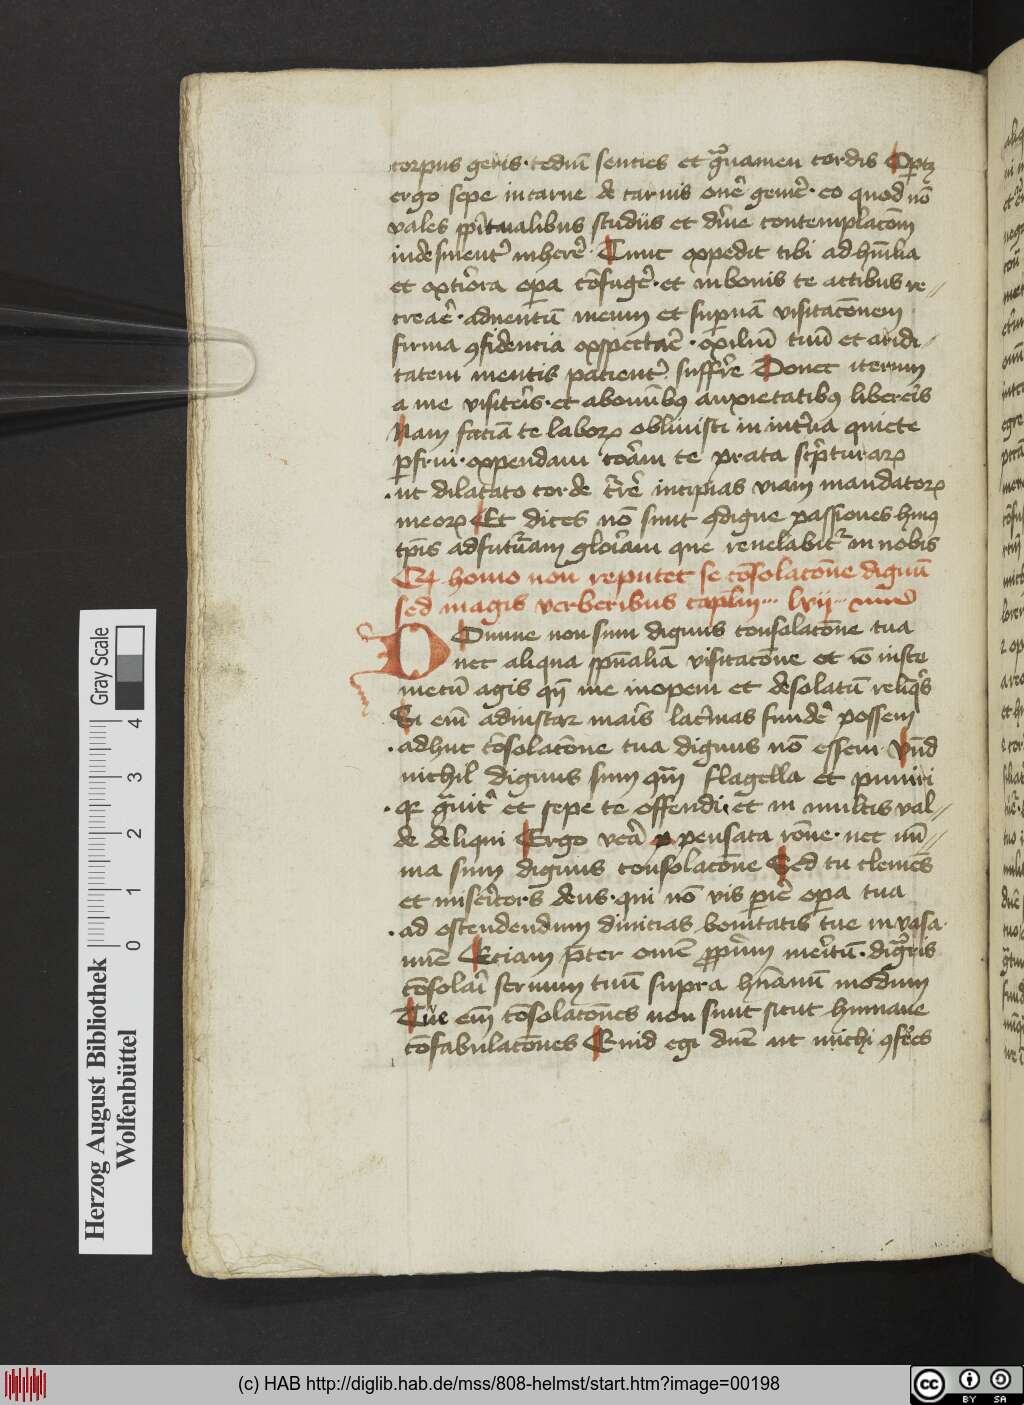 corpus geris · tediū senties et gͣuamen cordis Oportꝫ
ergo sepe in carne de carnis oneͬ gemeͬ · eo quod nō
vales spūitualibus studiis et diͥne contemplacōm
indesinentͬ inhereͬ · Tunc expedit tibi ad hūilia
et exteͬiora opa cōfugeͬ · et in bonis te actibus re //
creaeͬ · aduentū meum et supnā visitacōnem
firma ꝯfidencia exspectaeͬ · exiliū tuū et aridi //
tatem mentis pacientͬ suffeͬre Donec iterum
a me visiteͬis · et ab om̄ibꝰ anxietatibꝰ libereͬis
Nam faciā te laboꝝ obliuisci in inteͬna quiete
ꝑfrui · expendam corā te prata scͥpturaꝝ
· ut dilatato corde cͬreͬ incipias viam mandatoꝝ
meoꝝ Et dices nō sunt ꝯdigne passiones hniꝰ
tp̄is ad futuͬam gloͥiam que reuelabitͬ in nobis
Ꙙ homo non reputet se cōsolacōne dignū
sed magis verberibus caplm̄ ·· lvij ··
DOmine non sum dignus consolacōne tua
nec aliqua sp̄uali visitacōne et iō iuste
mecū agis qn̄ me inopem et desolatū relinqͥs
Si em̄ ad instar maris lacͥmas fundeͬ possem
· adhuc cōsolacōne tua dignus nō essem · Vn̄d
nichil dignus sum qm̄ flagella et puniri
· qꝛ gͣuitͬ et sepe te offendi · et in multis val //
de deliqui Ergo veͬa ꝑpensata rōne · nec mi //
nia sum dignus consolacōne Sed tu clemēs
et miseͬicors deus · qui nō vis ꝑireͬ opa tua
· ad ostendendum diuicias bonitatis tue in vasa ·
miē Eciam pͤter omē ꝓpͥum meͬitū · dignͬis
cōsolaͬi seruum tuū supra hūanū modum
Tue em̄ cōsolacōnes non sunt sicut humane
cōfabulacōnes Quid egi dnē ut michi ꝯfeͬres
Herzog August Bibliothek
Wolfenbüttel
0 1 2 3 4 Gray Scale
(c) HAB http://diglib.hab.de/mss/808-helmst/start.htm?image=00198
cc BY SA